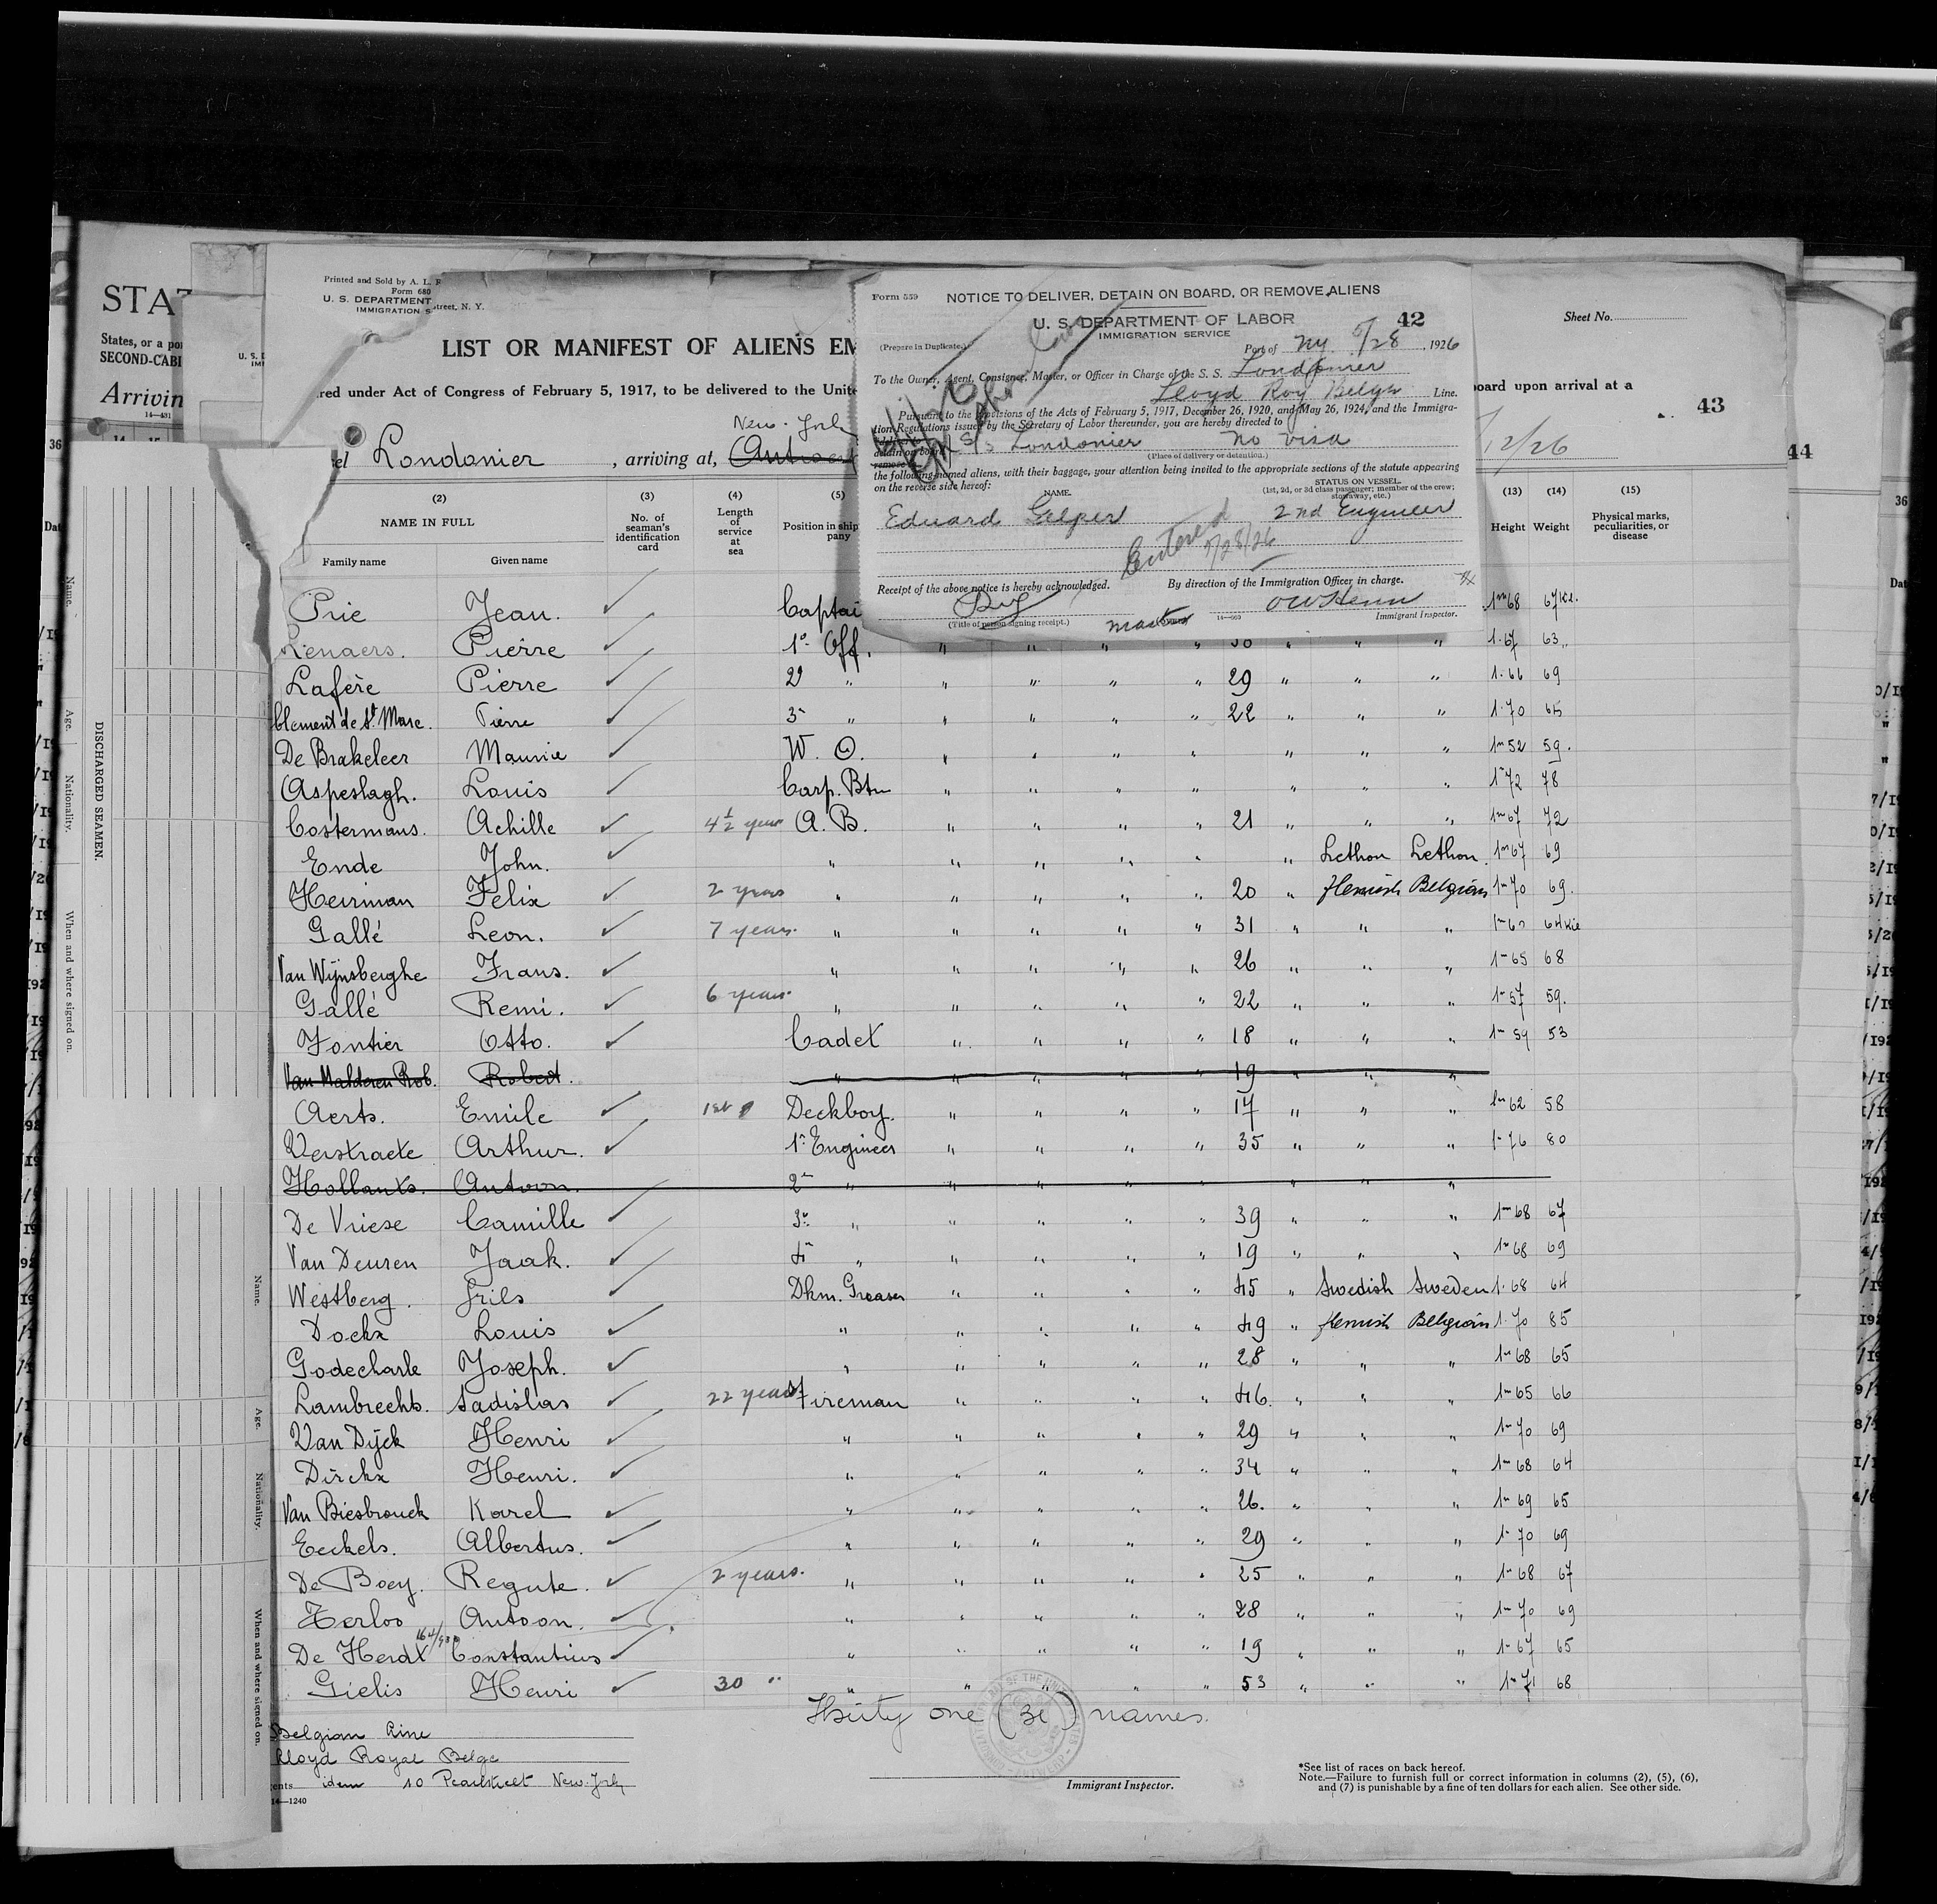 STAT
States, or a por
SECOND-CABI
Arrivin
14—491
DISCHARGED SEAMEN.
Name.
Age.
Nationality.
When and where signed on.
Name.
Age.
Nationality.
When and where signed on.
Printed and Sold by A. L.
Form 680
U. S. DEPARTMENT
IMMIGRATION S
street, N. Y.
LIST OR MANIFEST OF ALIENS EM
red under Act of Congress of February 5, 1917, to be delivered to the Unite
board upon arrival at a
Sheet No.
43
44
New-York
el Londonier, arriving at,
12/26
Form 559
NOTICE TO DELIVER, DETAIN ON BOARD, OR REMOVE ALIENS
U. S. DEPARTMENT OF LABOR
42
IMMIGRATION SERVICE
(Prepare in Duplicate.)
Port of NY 5/28, 1926
To the Owner, Agent, Consignee, Master, or Officer in Charge of the S. S. Londonier
Lloyd Roy Belge Line.
Pursuant to the provisions of the Acts of February 5, 1917, December 26, 1920, and May 26, 1924, and the Immigra-
tion Regulations issued by the Secretary of Labor thereunder, you are hereby directed to
detain on board S/s Londonier no visa
(Place of delivery or detention.)
the following-named aliens, with their baggage, your attention being invited to the appropriate sections of the statute appearing
on the reverse side hereof:
NAME.
STATUS ON VESSEL.
(1st, 2d, or 3d class passenger; member of the crew;
stowaway, etc.)
Eduard Gelper 2nd Engineer
Entered
5/28/26
Receipt of the above notice is hereby acknowledged.
By direction of the Immigration Officer in charge.
(Title of person signing receipt.)
master
14—669
Immigrant Inspector.
(2) (3) (4) (5) (13) (14) (15)
NAME IN FULL
No. of seaman's identification card
Length of service at sea
Position in ship
pany
Height Weight
Physical marks, peculiarities, or disease
Family name Given name
Prie Jean. Captai 1m68 67Kl.
Lenaers. Pierre 1° Off. " " " " 30 " " " 1.67 63
Lafère Pierre 2° " " " " " 29 " " " 1.66 69
Clement de St Marc. Pierre 3- " " " " " 22 " " " 1.70 65
De Brakeleer Maurice W. O. " " " " " " " 1m52 59.
Aspeslagh. Louis Carp. Btn " " " " " " " 1m72 78
Costermans. Achille 4½ year A. B. " " " " 21 " " " 1m67 72
Ende John. " " " " " " Lethon Lethon 1m67 69
Heirman Felix 2 years " " " " " 20 " Flemish Belgian 1m70 69.
Gallé Leon. 7 years. " " " " " 31 " " " 64Kil
Van Wynsberghe Frans. " " " " " 26 " " " 1m65 68
Gallé Remi. 6 years. " " " " " 22 " " " 1m57 59.
Fontier Otto. Cadet " " " " 18 " " " 1m59 53
Van Malderen Rob. Robert. " " " " " 19 " " "
Aerts. Emile 1st Deckboy. " " " " 17 " " " 1m62 58
Verstraete Arthur. 1° Engineer " " " " 35 " " " 1m76 80
Hollants. Antoon. 2- " " " " " " " "
De Vriese Camille 3° " " " " " 39 " " " 1m68 67
Van Deuren Jaak. 4- " " " " " 19 " " " 1m68 69
Westberg. Dkm. Greaser " " " " 45 " Swedish Sweden 1.68 64
Dockx Louis " " " " " 49 " Flemish Belgian 1.70 85
Godecharle Joseph. " " " " " 28 " " " 1m68 65
Lambrechts. Ladislas 22 years Fireman " " " " 46. " " " 1m65 66
Van Dijck Henri " " " " " 29 " " " 1m70 69
Dirckx Henri. " " " " " 34 " " " 1m68 64
Van Biesbrouck Karel " " " " " 26. " " " 1m69 65
Eeckels. Albertus. " " " " " 29 " " " 1m70 69
De Boey. Regute. 2 years. " " " " " 25 " " " 1m68 67
Antoon. " " " " " 28 " " " 1m70 69
De Herdt Constantinus " " " " " 19 " " " 1m67 65
Gielis Henri 30 " " " " " " 53 " " " 1m71 68
Thirty one (31) names.
Belgian Line
Lloyd Royal Belge
ents idem 10 Pearlstreet New-York
14—1240
Immigrant Inspector.
*See list of races on back hereof.
Note.—Failure to furnish full or correct information in columns (2), (5), (6),
and (7) is punishable by a fine of ten dollars for each alien. See other side.